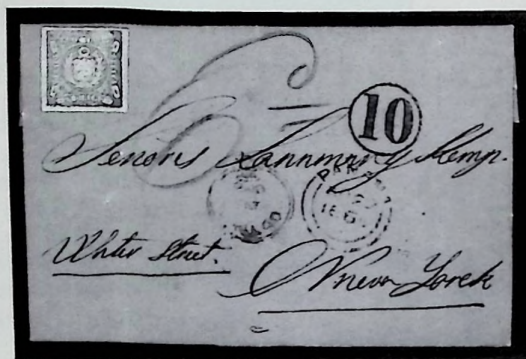 10
Senores Lanmman y Kemp.
PANAMA
Water Street.
Nueva Yorck